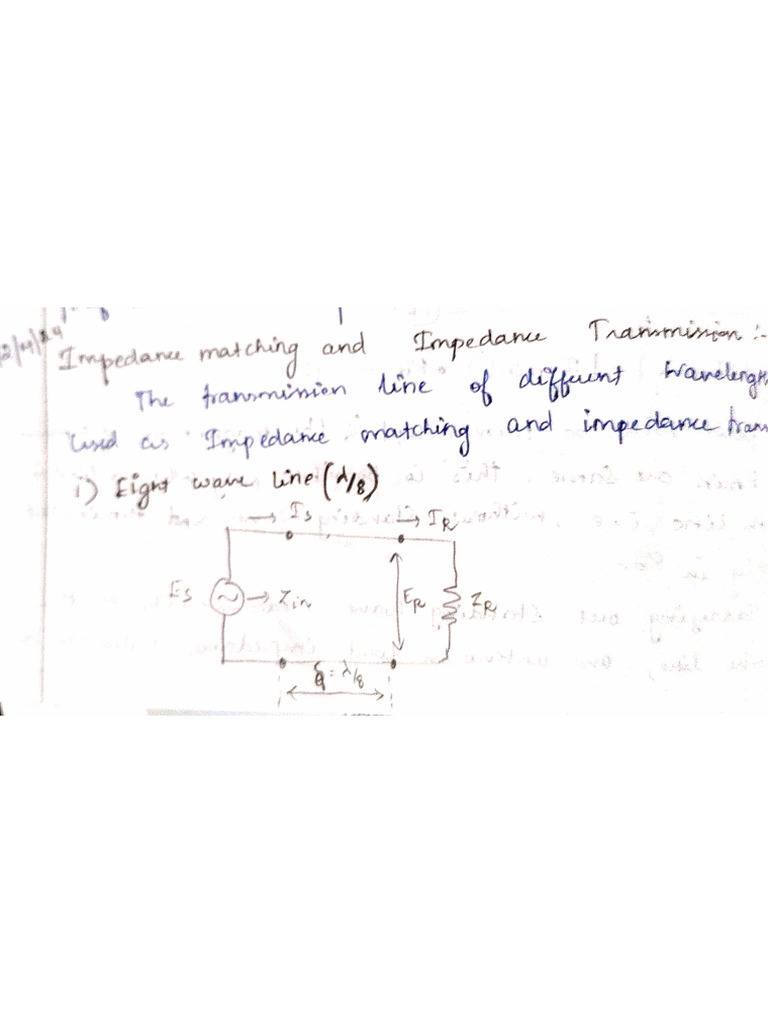 Impedance matching and Impedance Transmission :-
The transmission line of different wavelength
used as Impedance matching and impedance trans
i) Eight wave line (λ/8)
→ Is → IR
Es → Zin ER ZR
= λ/8